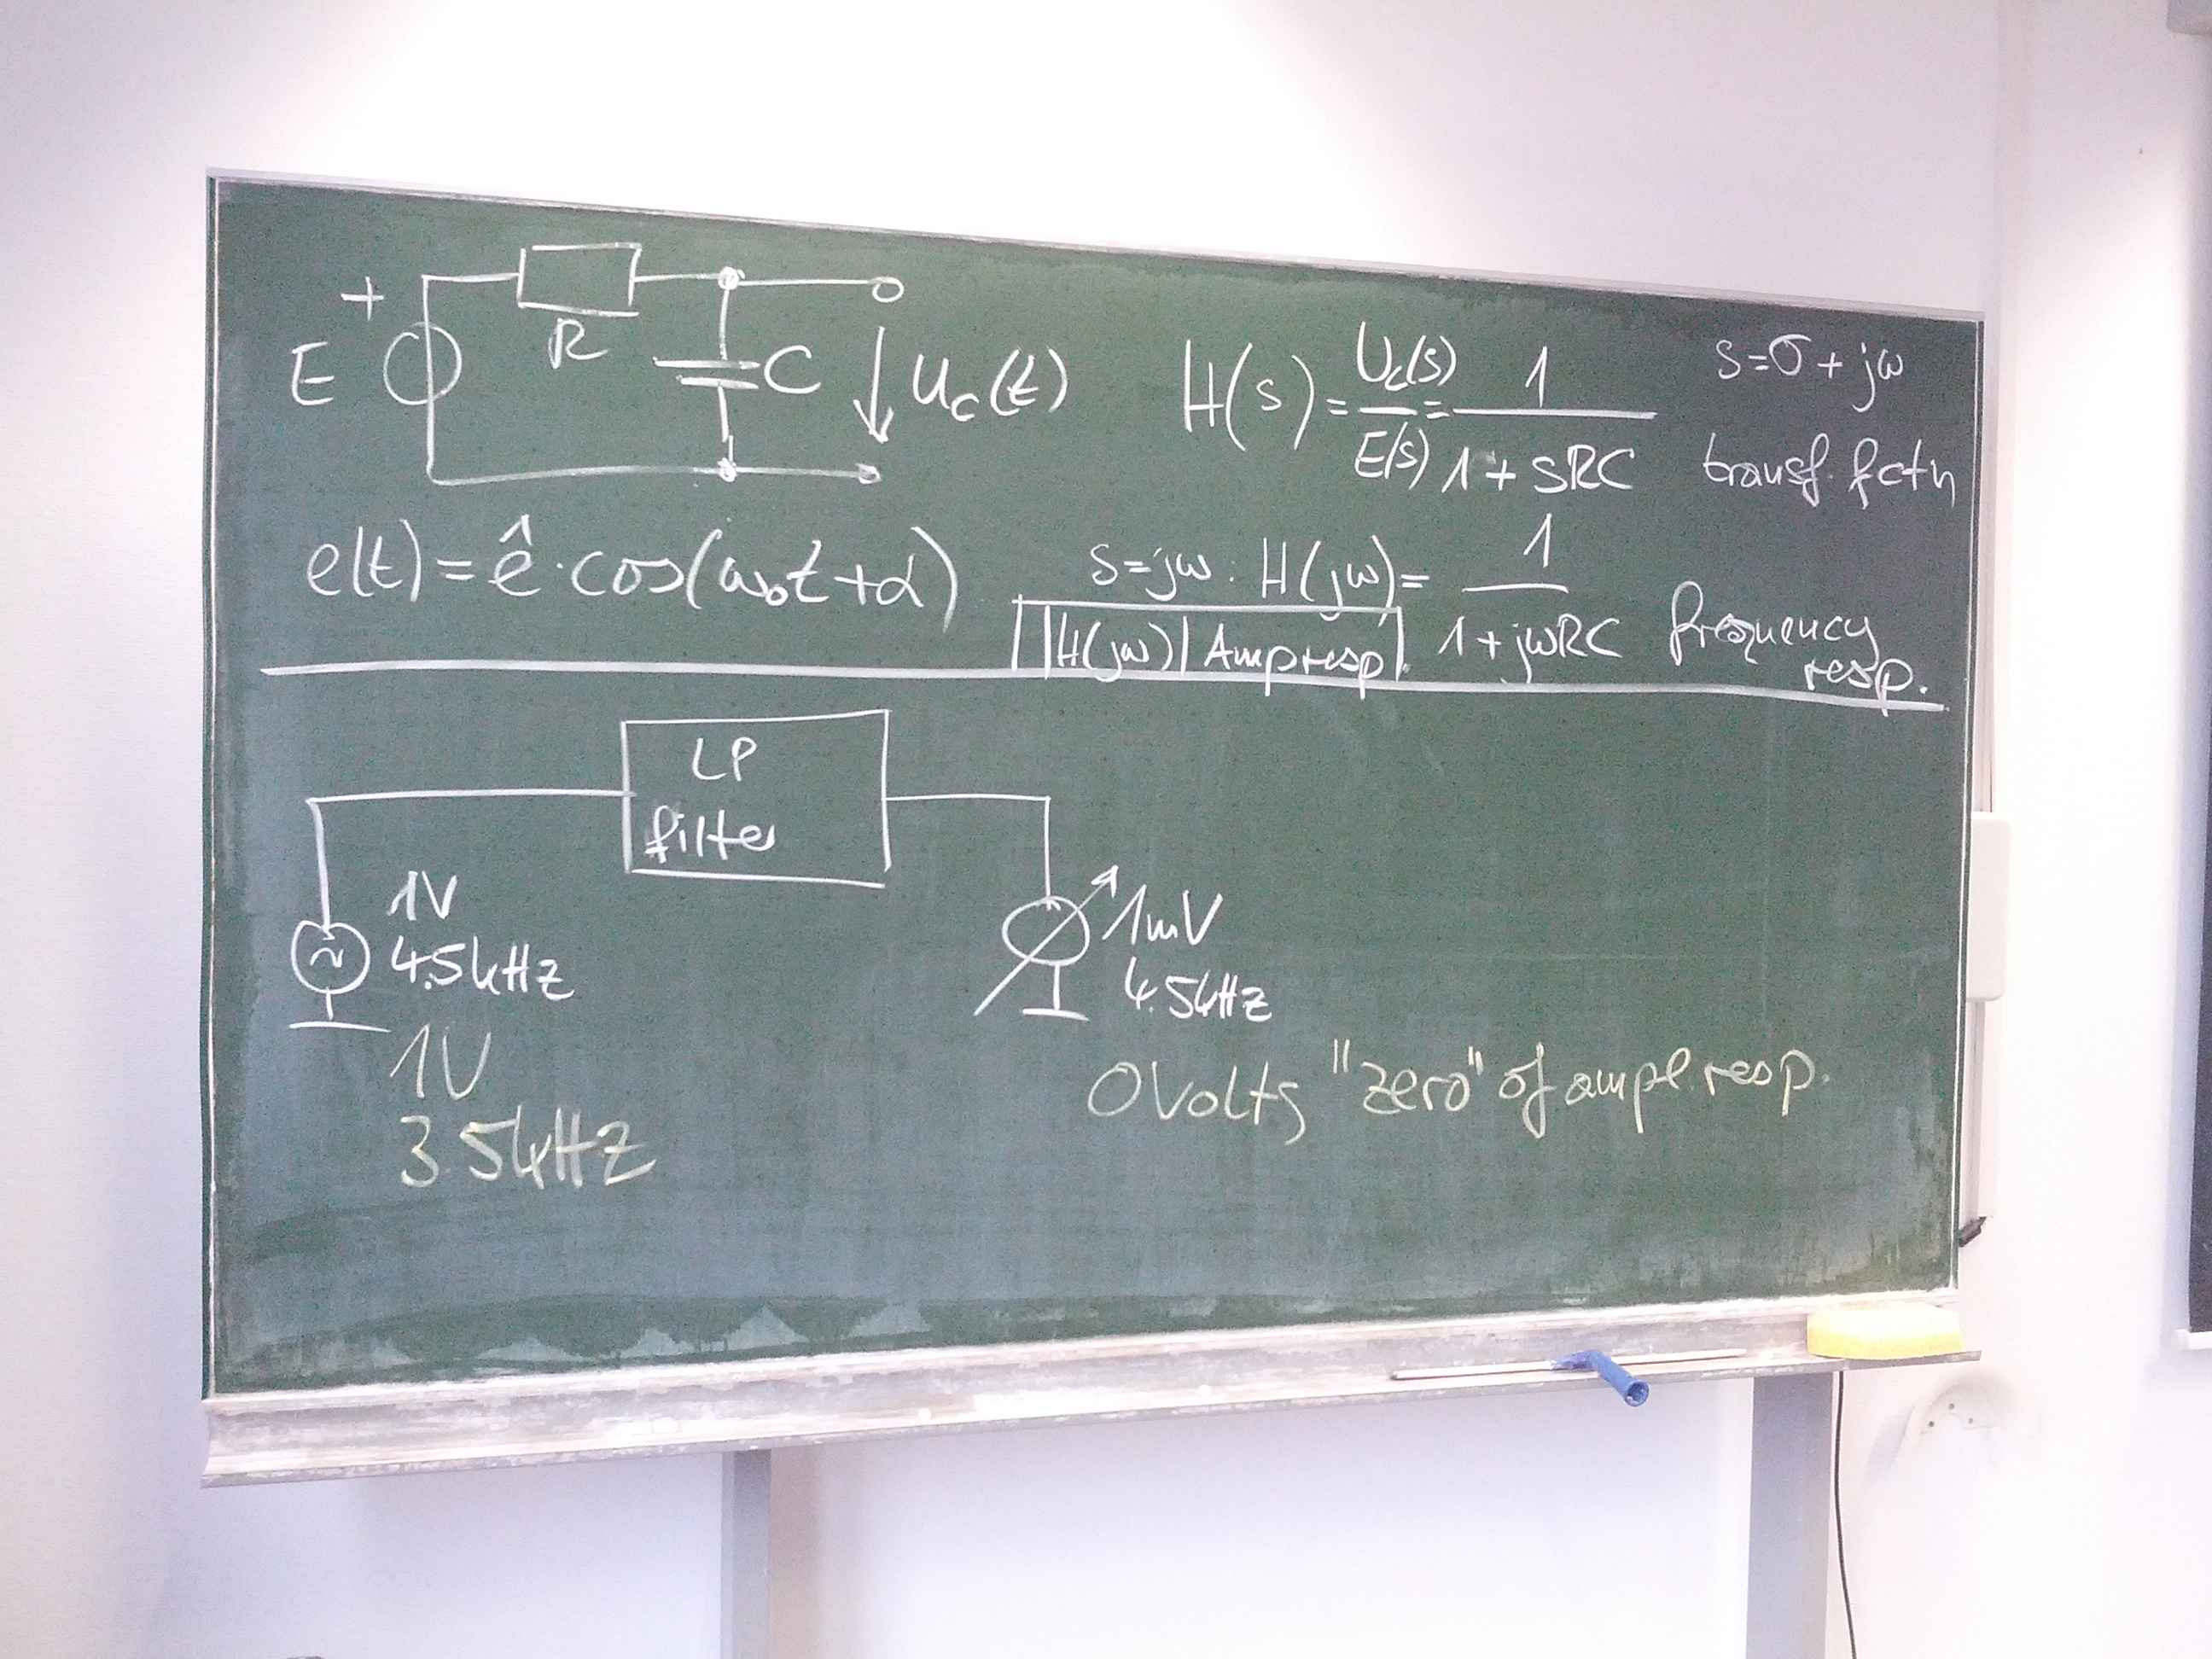 +
R
E
C
u_c(t)
H(s) = U_c(s)/E(s) = 1/(1 + sRC)
s = σ + jω
transf. fctn
e(t) = ê · cos(ω₀t + α)
s = jω : H(jω) = 1/(1 + jωRC)
frequency
resp.
|H(jω)| Amp resp.
LP
filter
1V
4.5kHz
1mV
4.5kHz
1V
3.5kHz
0Volts "zero" of ampl. resp.